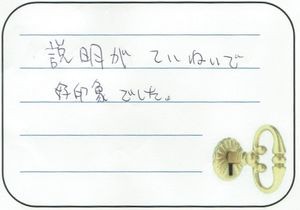 説明がていねいで
好印象でした。